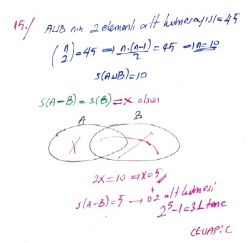 15./ AUB nin 2 elemanlı alt kümeleri sayısı=45
(n 2)=45 ⟹ n.(n-1)/2 = 45 ⟹ n=10
s(AUB)=10
s(A-B)=s(B)=x olsun
A B
X
2x=10 ⟹ x=5
s(A-B)=5 → alt kümesi
2^5-1=31 tane
CEVAP: C